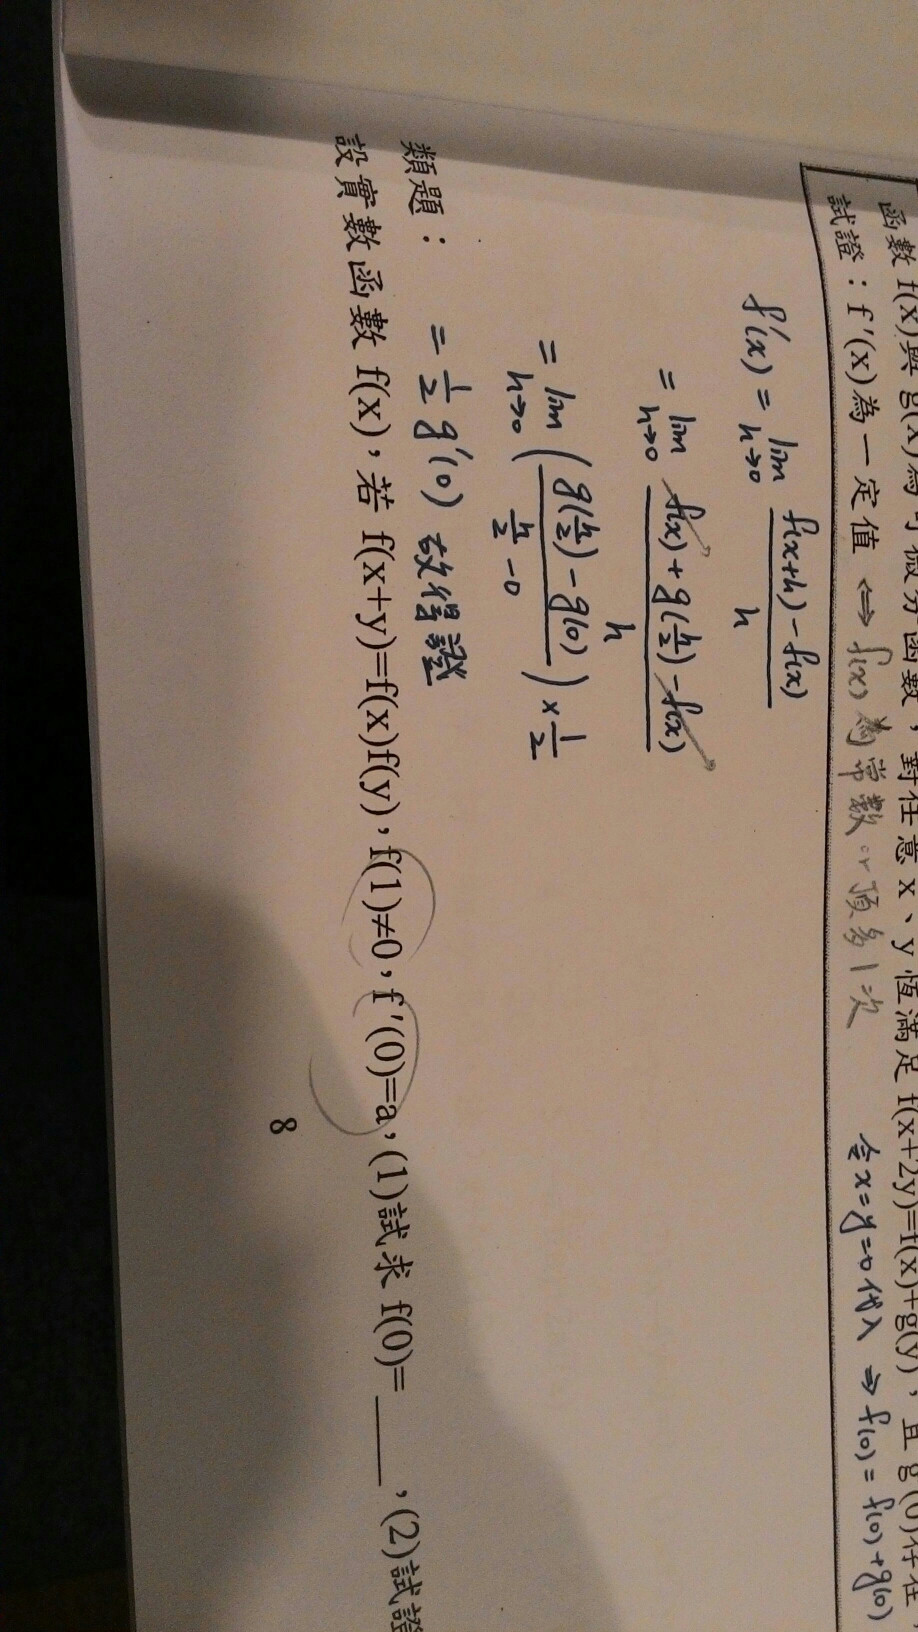 函數 f(x)與 g(x)為可微分函數，對任意 x、y 恆滿足 f(x+2y)=f(x)+g(y)，且 g'(0)存在，
試證：f'(x)為一定值 ⇔ f(x) 為常數 or 頂多1次 令x=y=0代入 ⇒ f(0) = f(0)+g(0)
f'(x) = lim h→0 f(x+h)-f(x) / h
= lim h→0 f(x)+g(h/2)-f(x) / h
= lim h→0 ( g(h/2)-g(0) / h/2 - 0 ) × 1/2
= 1/2 g'(0) 故得證
類題：
設實數函數 f(x)，若 f(x+y)=f(x)f(y)，f(1)≠0，f'(0)=a，(1)試求 f(0)=____，(2)試證
8